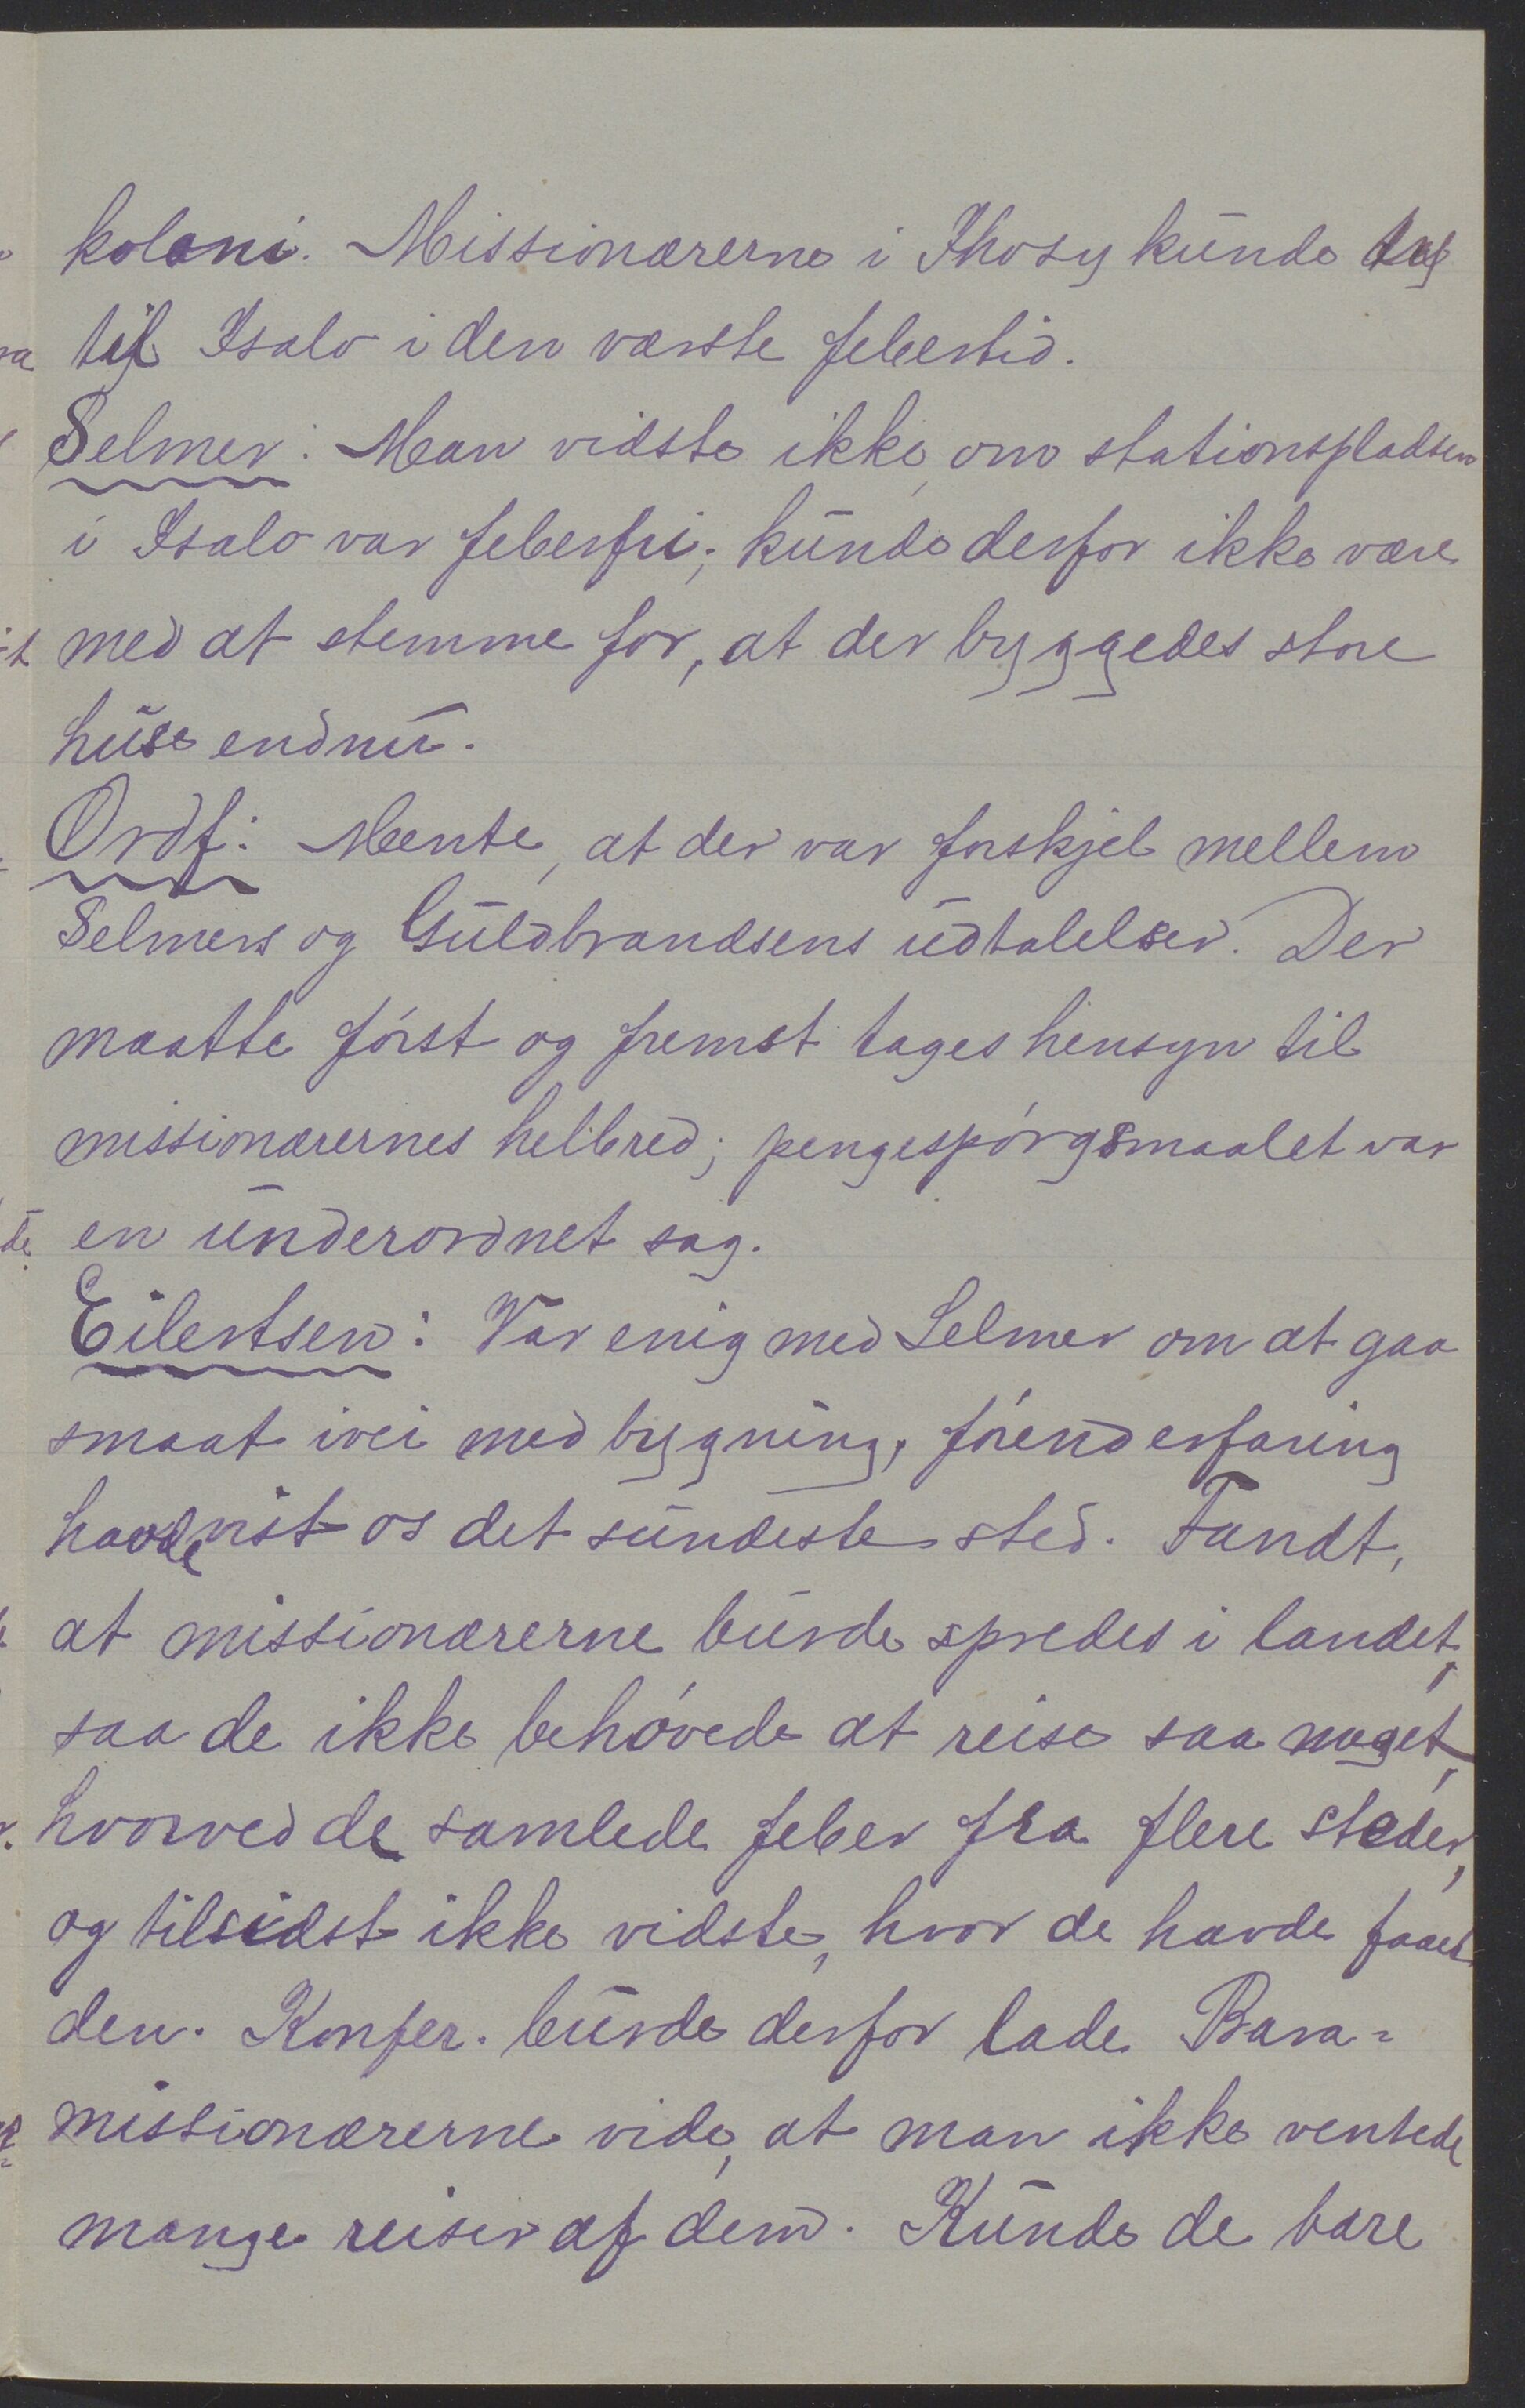 koloni. Missionærerne i Ihosy kunde
til Isalo i den værste febertid.
Selmer: Man vidste ikke, om stationspladsen
i Isalo var feberfri; kunde derfor ikke være
med at stemme for, at der byggedes store
huse endnu.
Ordf: Mente, at der var forskjel mellem
Selmers og Guldbrandsens udtalelser. Der
maatte först og fremst tages hensyn til
missionærernes helbred; pengespörgsmaalet var
en underordnet sag.
Eilertsen: Var enig med Selmer om at gaa
smaat ivei med bygning, förend erfaring
havde vist os det sundeste sted. Fandt,
at missionærerne burde spredes i landet,
saa de ikke behövede at reise saa meget,
hvorved de samlede feber fra flere steder,
og tilsidst ikke vidste, hvor de havde faaet
den. Konfer. burde derfor lade Bara=
missionærerne vide, at man ikke ventede
mange reiser af dem. Kunde de bare